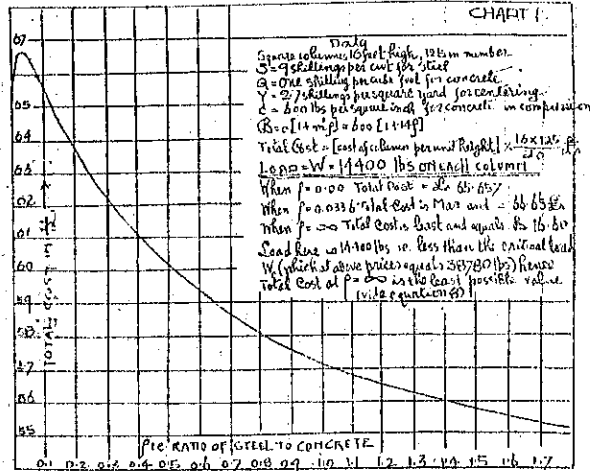 CHART 1
Data
Square columns 16 feet high, 125 in number
S = 9 shillings per cwt for steel
Q = One shilling per cube foot for concrete
Y = 2.7 shillings per square yard for centering
c = 600 lbs per square inch for concrete in compression
B = c [1+m'ρ] = 600 [1+14ρ]
Total Cost = [cost of column per unit height] × 16×125/20 £s
LOAD = W = 14400 lbs on each column
When ρ = 0.00 Total Cost = £s 65.657
When ρ = 0.0336 Total Cost is Max and = 66.65 £s
When ρ = ∞ Total Cost is least and equals £s 16.60
Load here = 14400 lbs ie. less than the critical load
W, (which at above prices equals 36780 lbs) hence
Total Cost at ρ = ∞ is the least possible value
(vide equation 8)
TOTAL COST IN £s
67
65
64
63
62
61
60
59
58
57
56
55
ρ ie RATIO OF STEEL TO CONCRETE
0.1 0.2 0.3 0.4 0.5 0.6 0.7 0.8 0.9 1.0 1.1 1.2 1.3 1.4 1.5 1.6 1.7